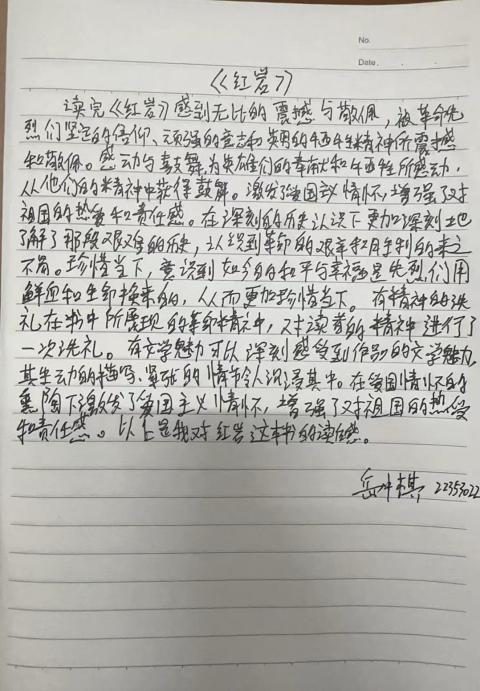 No.
Date.
《红岩》
读完《红岩》感到无比的震撼与敬佩,被革命先
烈们坚定的信仰、顽强的意志和英勇的牺牲精神所震撼
和敬佩。感动与鼓舞,为英雄们的奉献和牺牲所感动,
从他们的精神中获得鼓舞。激发爱国情怀,增强了对
祖国的热爱和责任感。在深刻的历史认识下更加深刻地
了解了那段艰难的历史,认识到革命的艰辛和胜利的来之
不易。珍惜当下,意识到如今的和平与幸福是先烈们用
鲜血和生命换来的,从而更加珍惜当下。有精神的洗
礼在书中所展现的革命精神中,对读者的精神进行了
一次洗礼。有文学魅力可以深刻感受到作品的文学魅力
其生动的描写、紧张的情节令人沉浸其中。在爱国情怀的
熏陶下激发了爱国主义情怀,增强了对祖国的热爱
和责任感。以上是我对红岩这本书的读后感。
岳 棋 22353022